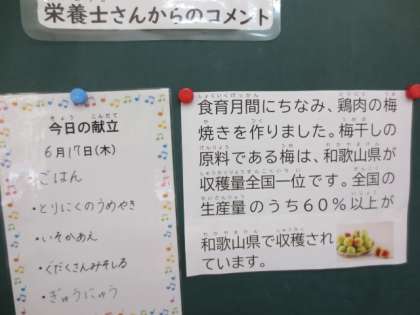 栄養士さんからのコメント
今日の献立
6月17日(木)
ごはん
・とりにくのうめやき
・いそかあえ
・ぐだくさんみそしる
・ぎゅうにゅう
食育月間にちなみ、鶏肉の梅
焼きを作りました。梅干しの
原料である梅は、和歌山県が
収穫量全国一位です。全国の
生産量のうち60%以上が
和歌山県で収穫され
ています。